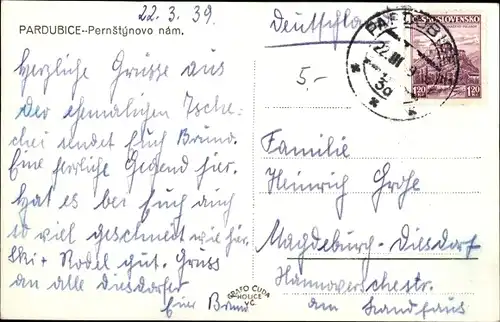 22.3.39.
PARDUBICE--Pernštýnovo nám.
Herzliche Grüsse aus
der ehemaligen Tsche-
chei sendet Euch Bruno.
Eine herrliche Gegend hier.
Hat es bei Euch auch
so viel geschneit wie hier.
Ski + Rodel gut. Gruss
an alle Diesdorfer
Euer Bruno
Deutschland
PARDUBICE
22.III.39
ČESKOSLOVENSKO
1.20 1.20
5.-
Familie
Heinrich Grohe
Magdeburg-Diesdorf
Hannoverschestr.
am Landhaus
GRAFO ČUDA
HOLICE